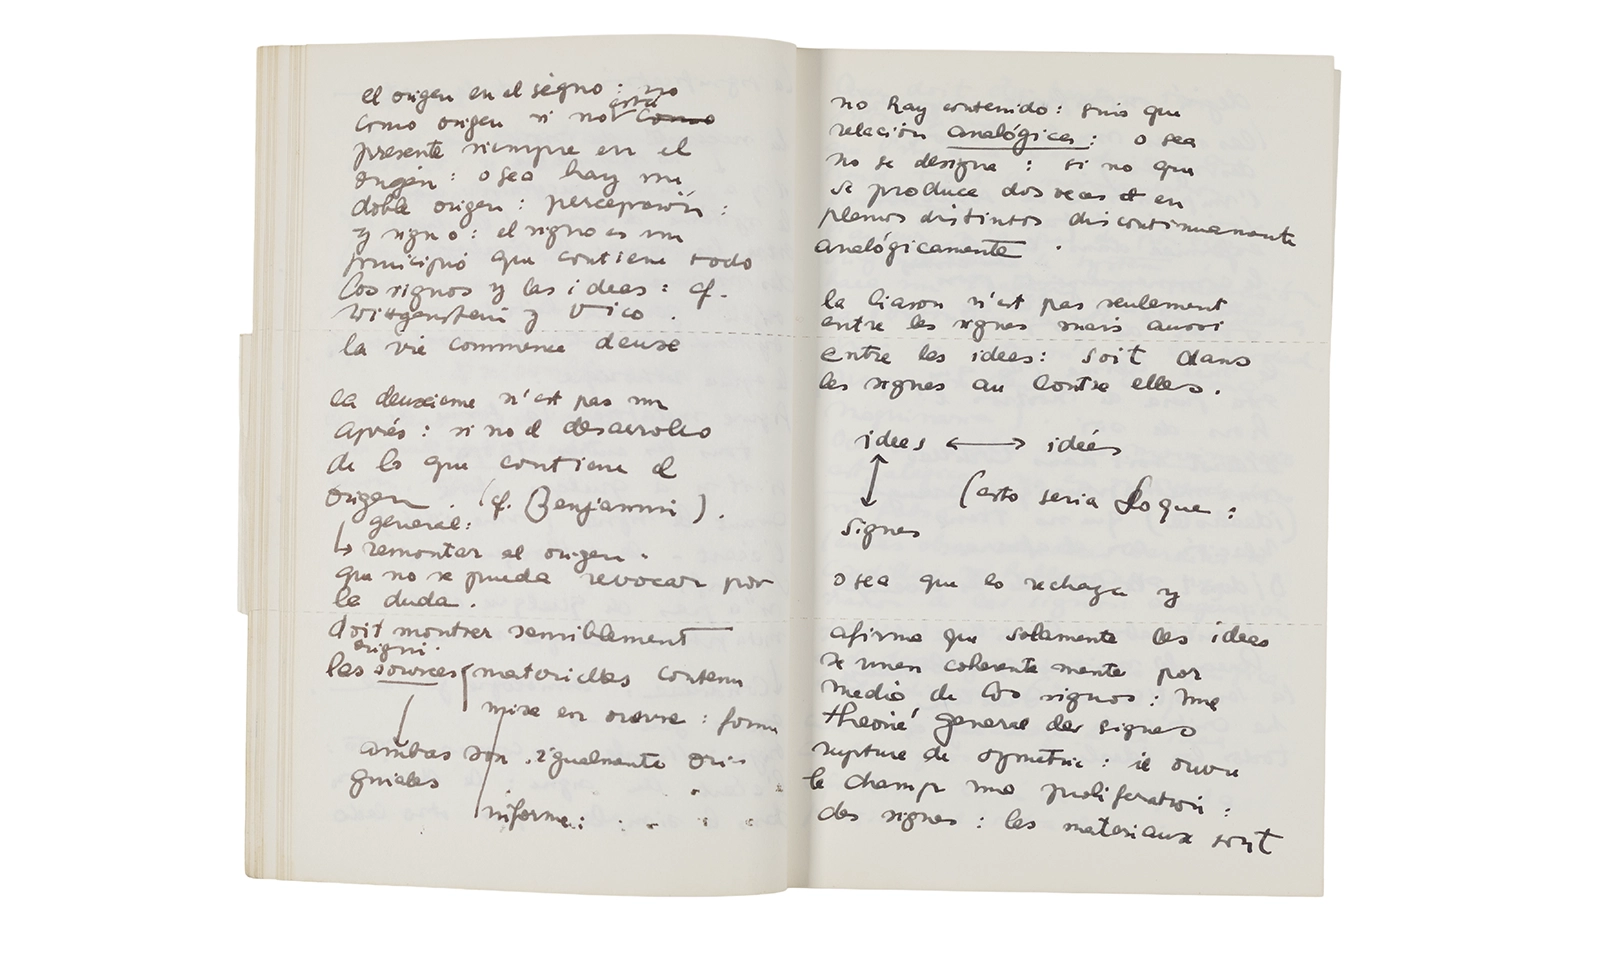 el origen en el signo : no
como origen si no está como
presente siempre en el
origen : o sea hay un
doble origen : percepción :
y signo : el signo es un
principio que contiene todo
los signos y las ideas : cf.
Wittgenstein y Vico .
la vie commence deuxe
la deuxieme n'est pas un
après : si no el desarrollo
de lo que contiene el
origen (cf. Benjamin) .
general :
↳ remontar al origen .
que no se pueda revocar por
la duda .
doit montrer sensiblement
origni .
les sources materielles contenu
mise en oeuvre : forme
ambas son igualmente ori-
ginales
informe :
no hay contenido : sino que
relación analógica : o sea
no se designa : si no que
se produce dos veces en
planos distintos discontinuamente
analógicamente .
la liason n'est pas seulement
entre les signes mais aussi
entre les idees : soit dans
les signes au contre elles .
idees ⟷ idées
↕
(esto seria lo que :
signes
o sea que lo rechaza y
afirma que solamente las ideas
se unen coherente mente por
medio de los signos : une
theorie general des signes
rupture de symetrie : il ouvre
le champ une proliferation :
des signes : les materiaux sont